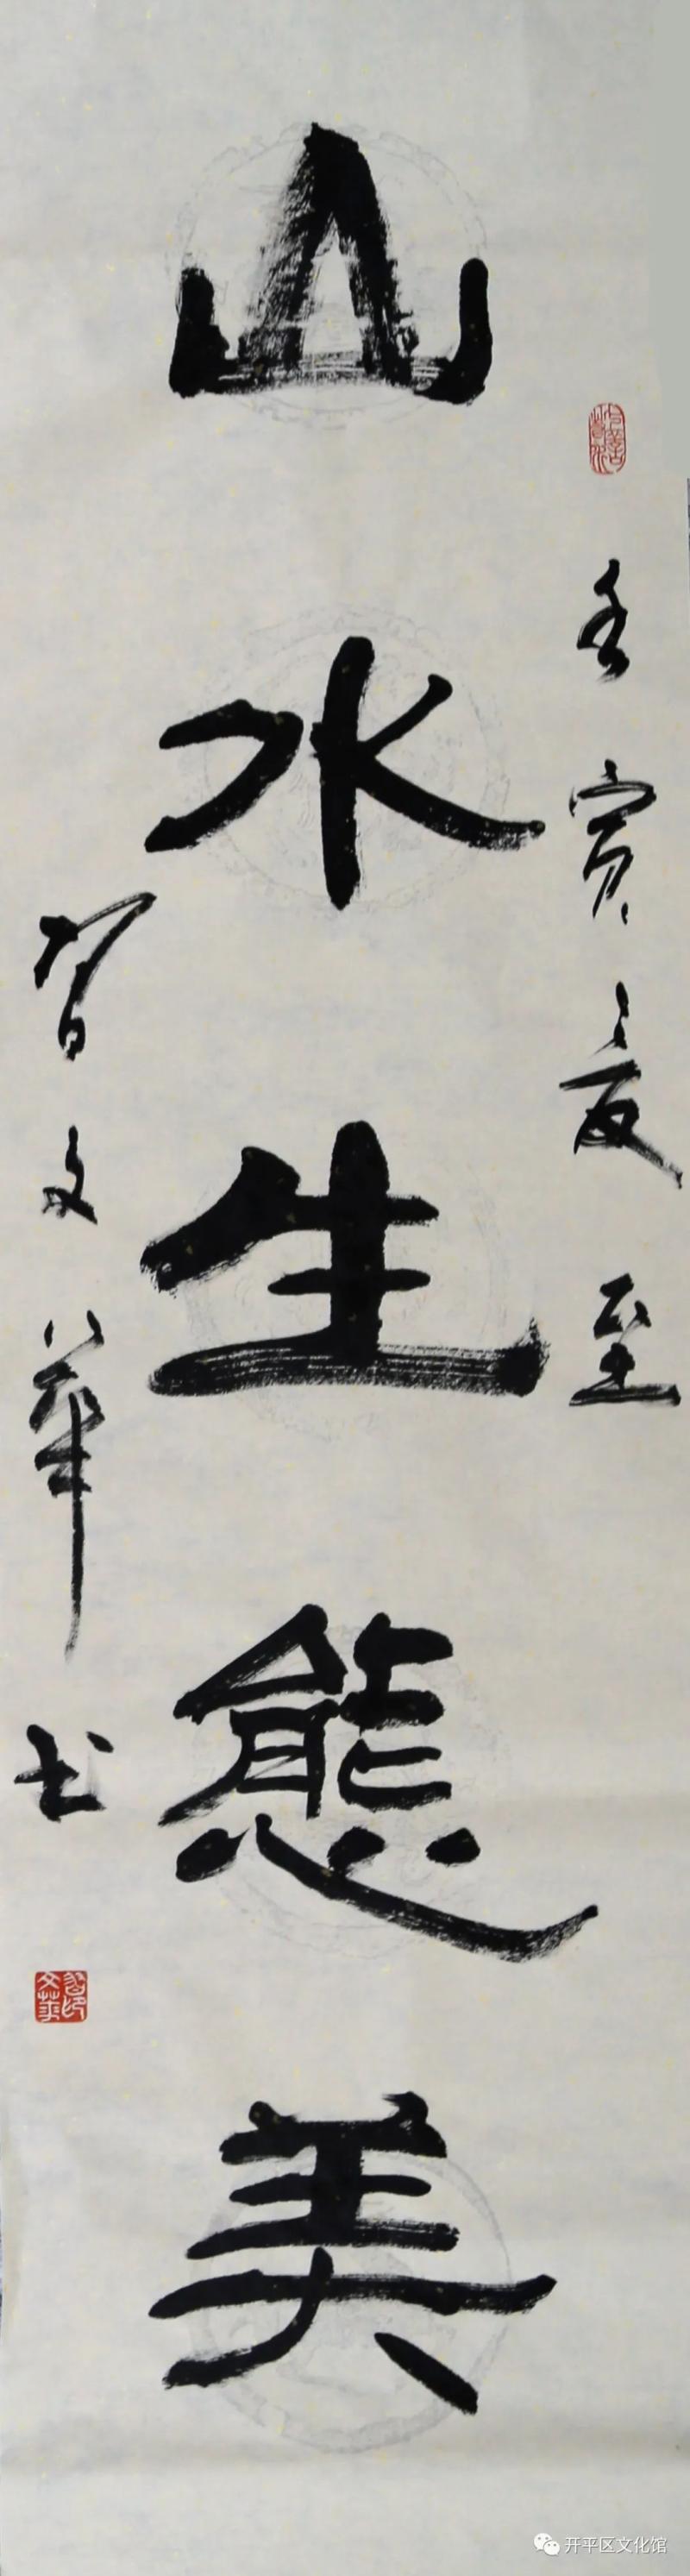 壬寅夏至
山水生態美
文華书
开平区文化馆